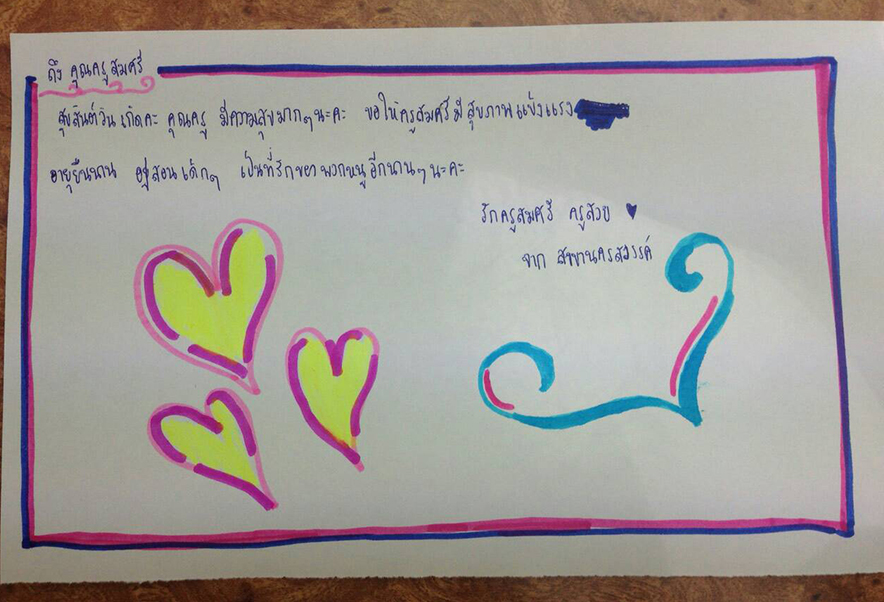 ถึง คุณครูสมศรี
สุขสันต์วันเกิดคะ คุณครู มีความสุขมากๆนะคะ ขอให้ครูสมศรีมีสุขภาพแข็งแรง
อายุยืนนาน อยู่สอนเด็กๆ เป็นที่รักของพวกหนูอีกนานๆนะคะ
รักครูสมศรี ครูสวย ♥
จาก สาขานครสวรรค์